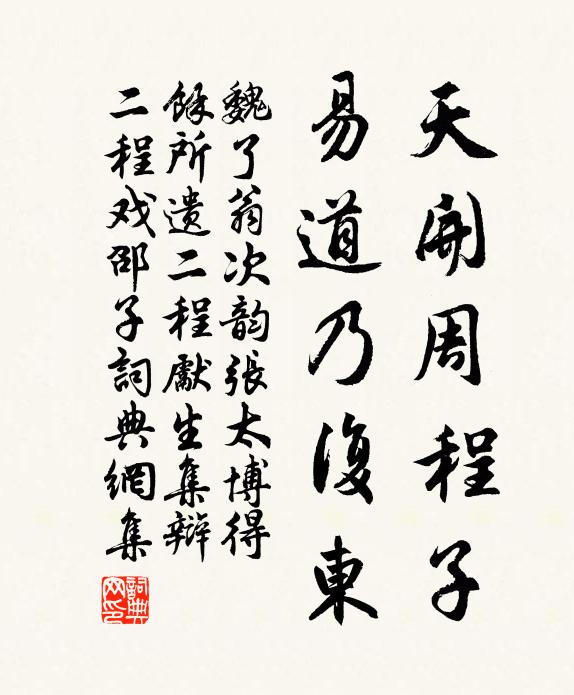 天開周程子
易道乃復東
魏了翁次韵張太博得
餘所遗二程獻生集辯
二程戏邵子詞典網集
詞典網印